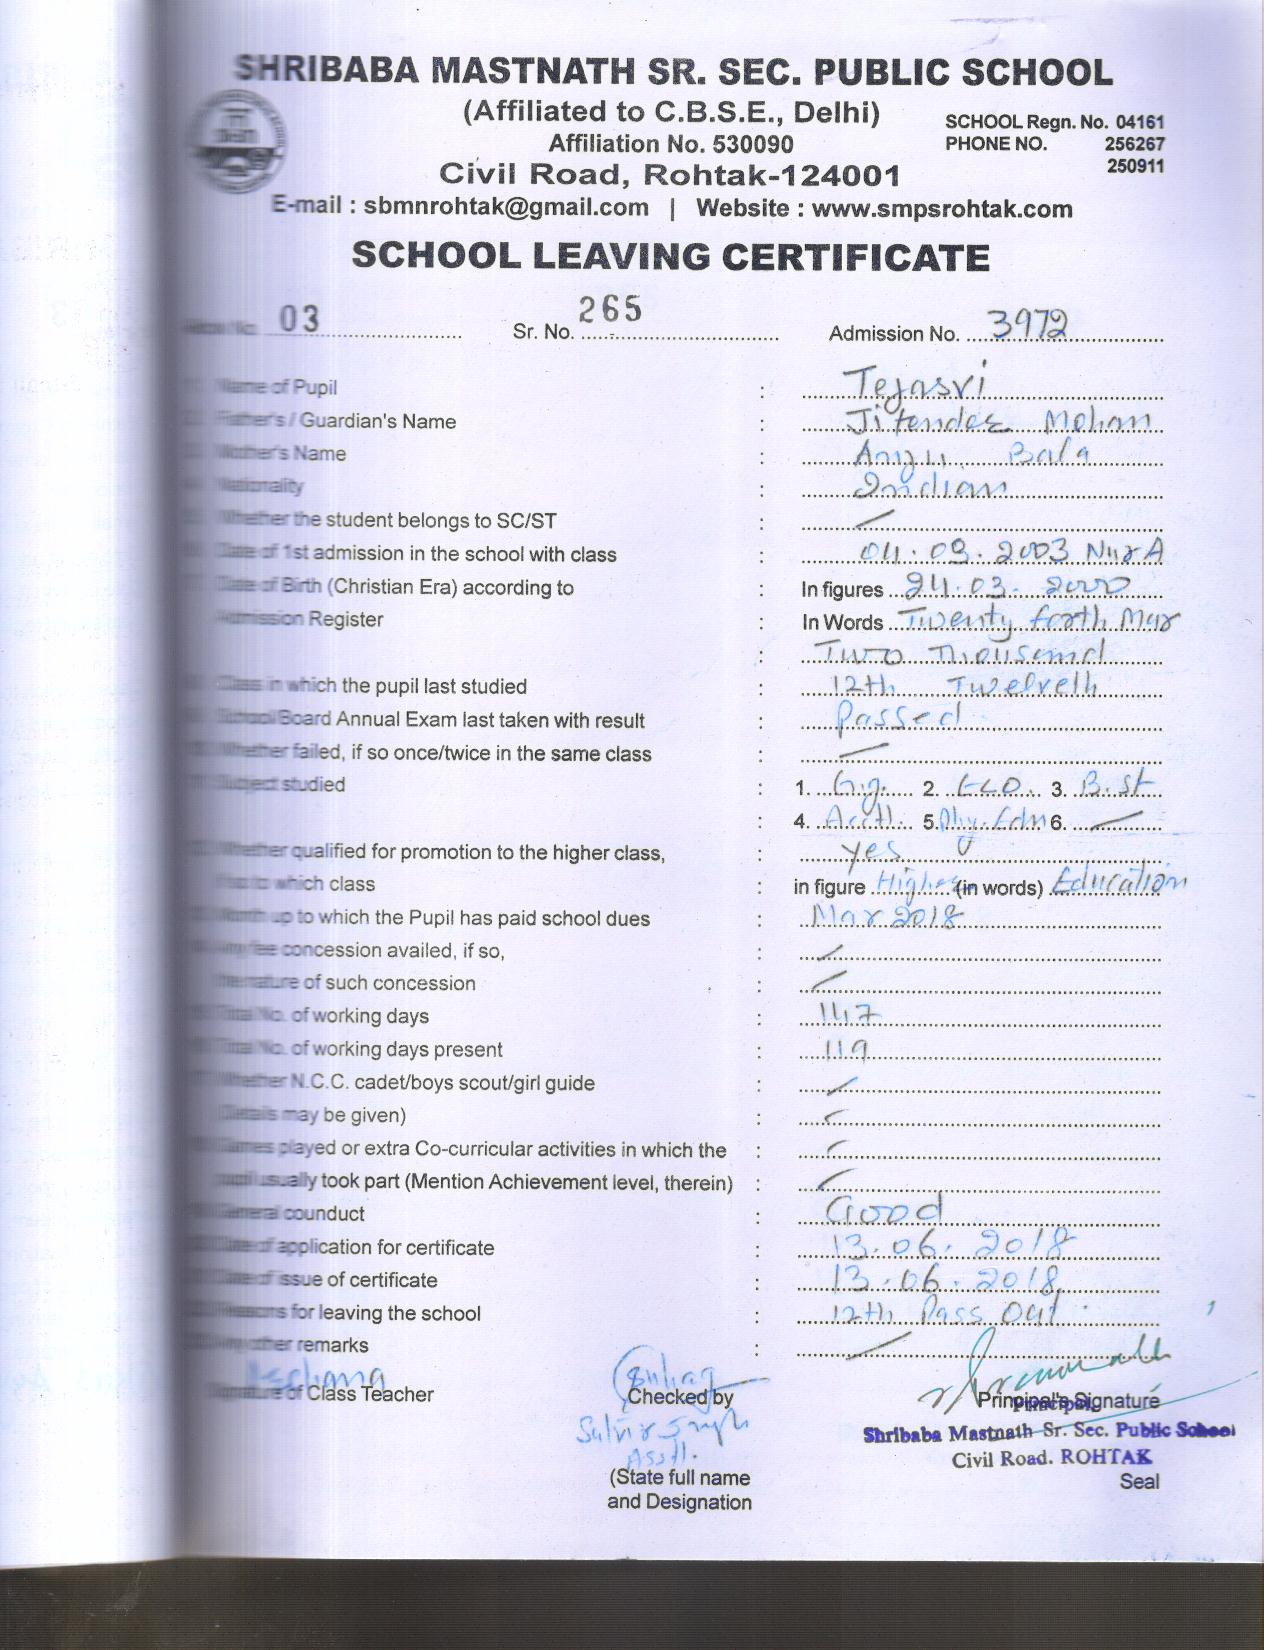 SHRIBABA MASTNATH SR. SEC. PUBLIC SCHOOL
(Affiliated to C.B.S.E., Delhi)
Affiliation No. 530090
SCHOOL Regn. No. 04161
PHONE NO. 256267
250911
Civil Road, Rohtak-124001
E-mail : sbmnrohtak@gmail.com | Website : www.smpsrohtak.com
SCHOOL LEAVING CERTIFICATE
03 Sr. No. 265 Admission No. 3972
Name of Pupil : Tejasvi
Father's / Guardian's Name : Jitender Mohan
Mother's Name : Anju Bala
Nationality : Indian
Whether the student belongs to SC/ST :
Date of 1st admission in the school with class : 04.09.2003 Nur A
Date of Birth (Christian Era) according to : In figures 24.03.2000
Admission Register : In Words Twenty forth Mar
: Two Thousand
Class in which the pupil last studied : 12th Twelveth
School/Board Annual Exam last taken with result : Passed
Whether failed, if so once/twice in the same class :
Subject studied : 1. Eng. 2. ECO. 3. B.st
: 4. Acctt. 5. Phy. Edn 6.
Whether qualified for promotion to the higher class, : yes
if so to which class : in figure Higher (in words) Education
Month up to which the Pupil has paid school dues : Mar 2018
Any fee concession availed, if so, :
the nature of such concession :
Total No. of working days : 147
Total No. of working days present : 119
Whether N.C.C. cadet/boys scout/girl guide :
(Details may be given) :
Games played or extra Co-curricular activities in which the :
pupil usually took part (Mention Achievement level, therein) :
General counduct : Good
Date of application for certificate : 13.06.2018
Date of issue of certificate : 13.06.2018
Reasons for leaving the school : 12th Pass Out
Any other remarks :
Signature of Class Teacher Checked by Principal's Signature
Principal
Shribaba Mastnath Sr. Sec. Public School
Civil Road. ROHTAK
Asstt.
(State full name Seal
and Designation